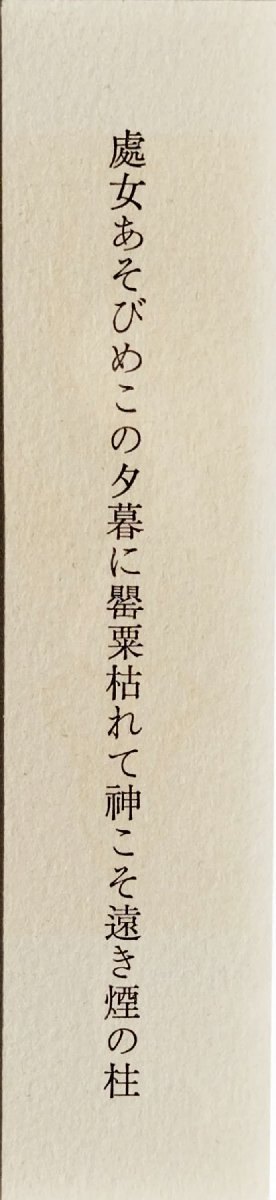 處女あそびめこの夕暮に罌粟枯れて神こそ遠き煙の柱